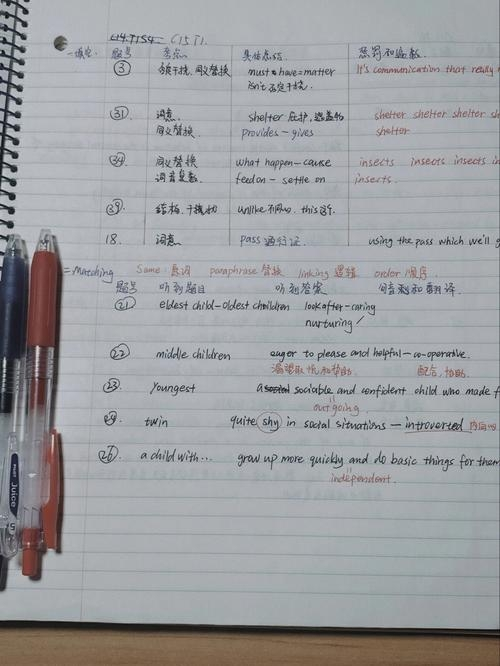 C14.T1S4 - (15')
一.填空. 题号 考点 具体总结
③ 多换干扰, 同义替换 must have = matter It's communication that really
isn't 否定干扰.
㉛ 词意. shelter 庇护, 遮盖物 shelter shelter shelter sh
同义替换 provides - gives shelter
㉞ 同义替换 what happen - cause insects insects insects in
feed on - settle on insects.
㊴ 结构, 干扰 unlike 不同加. this
18. 词意 pass 通行证 using the pass which we'll g
二 Matching Same: 原词 paraphrase 替换 linking 逻辑 order 顺序
题号 听到题目 听到答案
㉑ eldest child - oldest children look after - caring
nurturing
㉒ middle children eager to please and helpful - co-operative.
配合, 协助.
㉓ youngest a sociable and confident child who made f
outgoing
twin quite shy in social situations - introverted 内向
a child with... grow up more quickly and do basic things for them
independent.
Juice